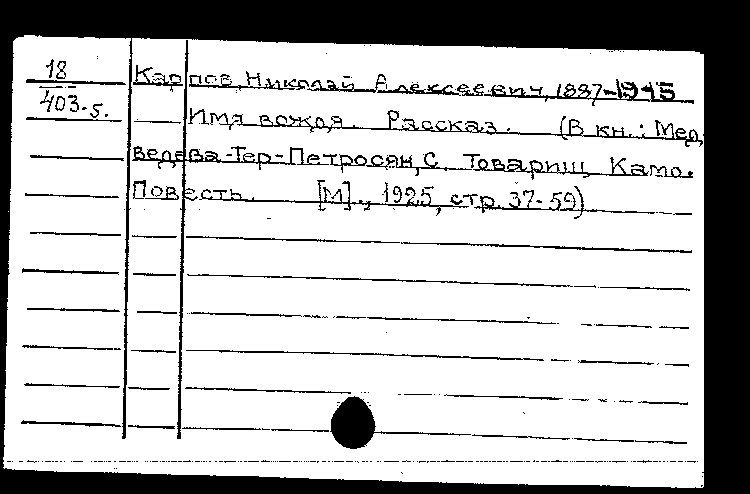 18
403-5.
Карпов, Николай Алексеевич, 1887-1945
Имя вождя. Рассказ. (В кн.: Мед-
ведева-Тер-Петросян, С. Товарищ Камо.
Повесть. [М]., 1925, стр. 37-59)